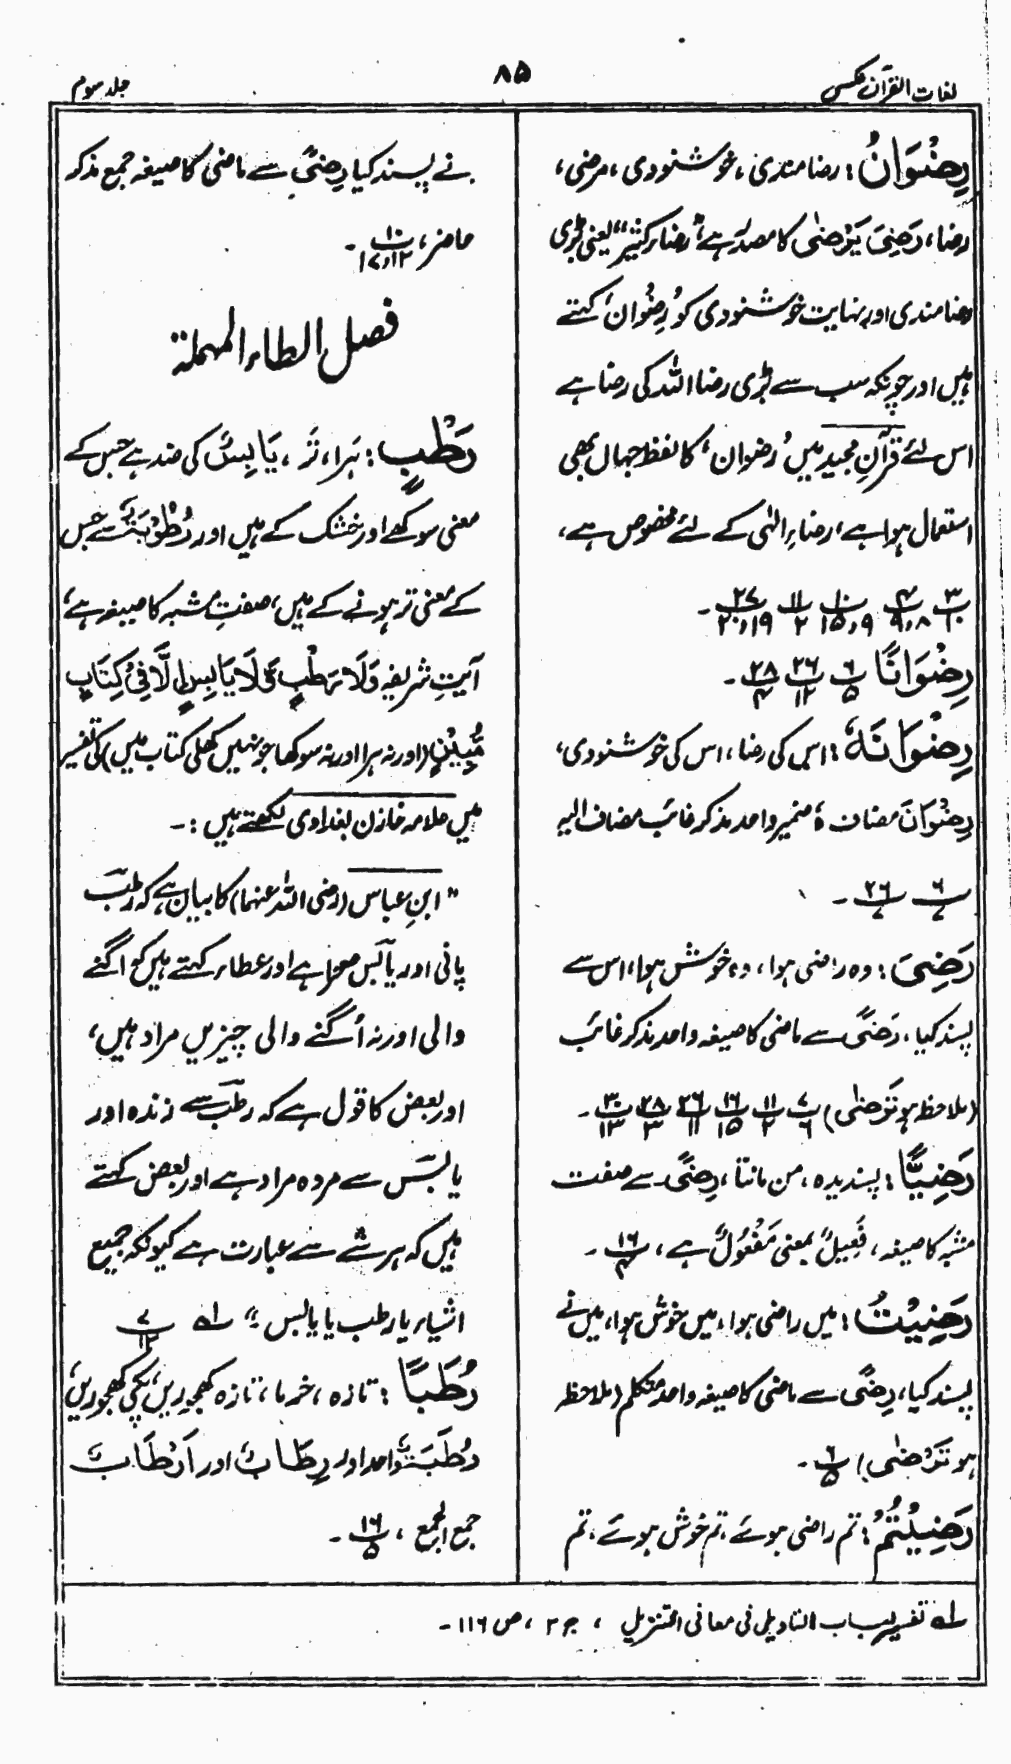 لغات القرآن مکمل
۸۵
جلد سوم
رِضْوَانٌ: رضا مندی، خوشنودی، مرضی،
رضا، رَضِیَ یَرْضٰی کا مصدر ہے "رضاء کثیر" یعنی بڑی
رضا مندی اور نہایت خوشنودی کو 'رِضْوان' کہتے
ہیں اور چونکہ سب سے بڑی رضا اللہ کی رضا ہے
اس لئے قرآن مجید میں 'رضوان' کا لفظ جہاں بھی
استعمال ہوا ہے، رضاءِ الٰہی کے لئے مخصوص ہے،
۳/۱۰ ۴/۹،۸ ۱۰/۱۵،۹ ۱۱/۲ ۲۷/۲۰،۱۹ ۔
رِضْوَانًا ۶/۵ ۲۶/۱۲ ۲۸/۴ ۔
رِضْوَانَهٗ: اس کی رضا، اس کی خوشنودی،
رِضْوَانَ مضاف ہٗ ضمیر واحد مذکر غائب مضاف الیہ
۶/۷ ۲۶/۷ ۔
رَضِیَ: وہ راضی ہوا، وہ خوش ہوا، اس نے
پسند کیا، رِضًی سے ماضی کا صیغہ واحد مذکر غائب
(ملاحظہ ہو تَرْضٰی) ۷/۶ ۱۱/۲ ۱۶/۱۵ ۲۶/۱۱ ۲۸/۳ ۳۰/۱۳ ۔
رَضِیًّا: پسندیدہ، من مانتا، رِضًی سے صفت
مشبہ کا صیغہ، فَعِیلٌ بمعنی مَفْعُولٌ ہے، ۱۶/۴ ۔
رَضِیْتُ: میں راضی ہوا، میں خوش ہوا، میں نے
پسند کیا، رِضًی سے ماضی کا صیغہ واحد متکلم (ملاحظہ
ہو تَرْضٰی) ۶/۵ ۔
رَضِیْتُمْ: تم راضی ہوئے، تم خوش ہوئے، تم
نے پسند کیا رِضًی سے ماضی کا صیغہ جمع مذکر
حاضر، ۱۰/۱۷،۱۲ ۔
فصل الطاء المہملة
رَطْبٍ: ہَرا، تَر، یَابِسٌ کی ضد ہے جس کے
معنی سوکھے اور خشک کے ہیں اور رُطُوْبَتٌ سے جس
کے معنی تر ہونے کے ہیں، صفتِ مشبہ کا صیغہ ہے،
آیتِ شریفہ وَلَا رَطْبٍ وَّلَا یَابِسٍ اِلَّا فِیْ کِتَابٍ
مُّبِیْنٍ (اور نہ ہرا اور نہ سوکھا جو نہیں کھلی کتاب میں) کی تفسیر
میں علامہ خازن بغدادی لکھتے ہیں :۔
"ابنِ عباس (رضی اللہ عنہما) کا بیان ہے کہ رطب
پانی اور یابس صحرا ہے اور عطاء کہتے ہیں کہ اگنے
والی اور نہ اُگنے والی چیزیں مراد ہیں،
اور بعض کا قول ہے کہ رطب سے زندہ اور
یابس سے مردہ مراد ہے اور بعض کہتے
ہیں کہ ہر شے سے عبارت ہے کیونکہ جمیع
اشیاء یا رطب یا یابس ؛" لہ ۷/۱۳
رُطَبًا: تازہ، خرما، تازہ کھجوریں، پکی کھجوریں،
رُطَبَةٌ واحد اور رِطَابٌ اور اَرْطَابٌ
جمع الجمع، ۱۶/۵ ۔
لہ تفسیر لباب التاویل فی معانی التنزیل ، ج ۲، ص ۱۱۶ ۔